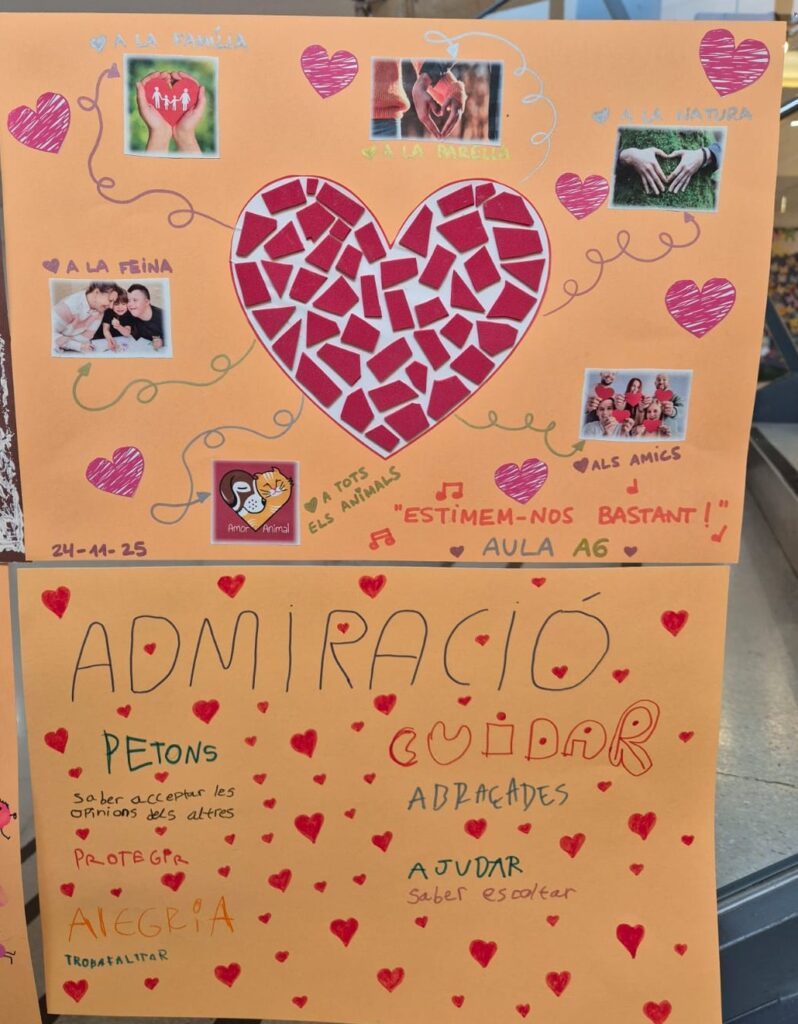 A LA FAMÍLIA
A LA PARELLA
A LA NATURA
A LA FEINA
ALS AMICS
A TOTS
ELS ANIMALS
Amor Animal
"ESTIMEM-NOS BASTANT!"
24-11-25
AULA A6
ADMIRACIÓ
PETONS
CUIDAR
saber acceptar les
opinions dels altres
ABRAÇADES
PROTEGIR
AJUDAR
saber escoltar
ALEGRIA
TROBAFALITAR